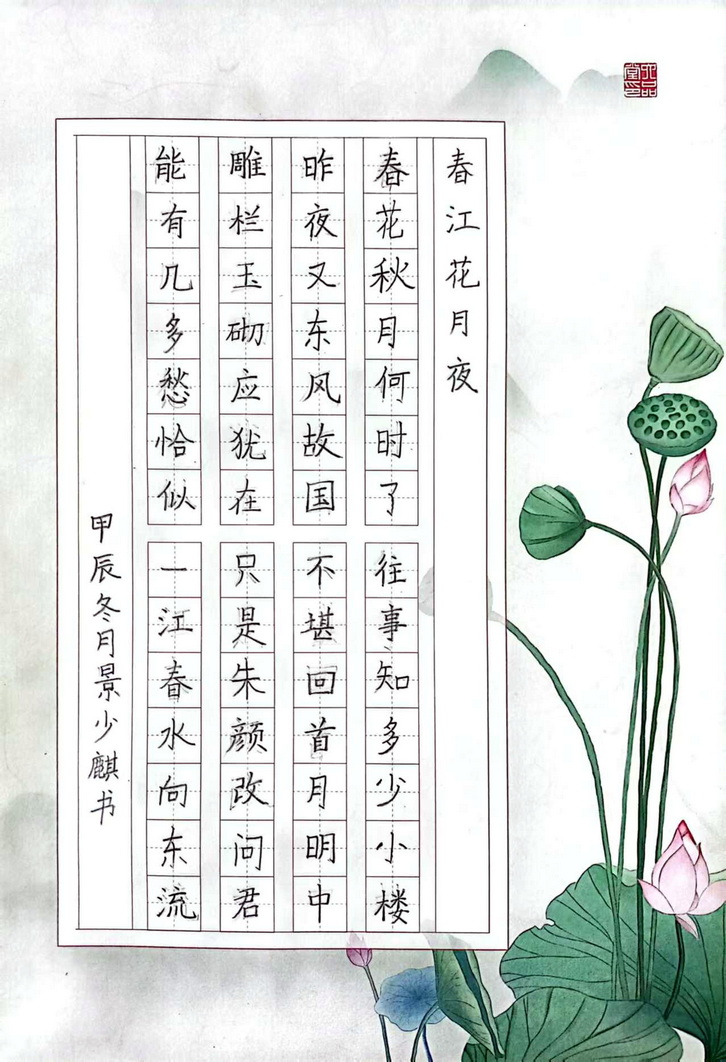 春江花月夜
春花秋月何时了往事知多少小楼
昨夜又东风故国不堪回首月明中
雕栏玉砌应犹在只是朱颜改问君
能有几多愁恰似一江春水向东流
甲辰冬月景少麒书